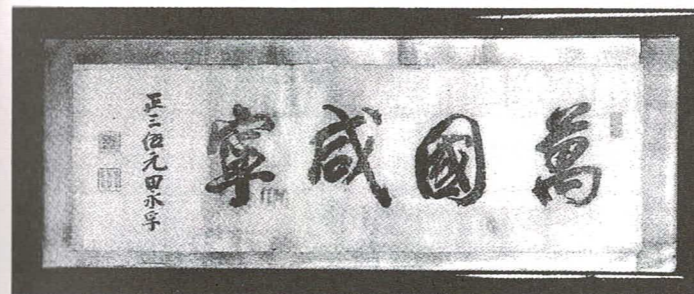 萬國咸寧
正三位元田永孚